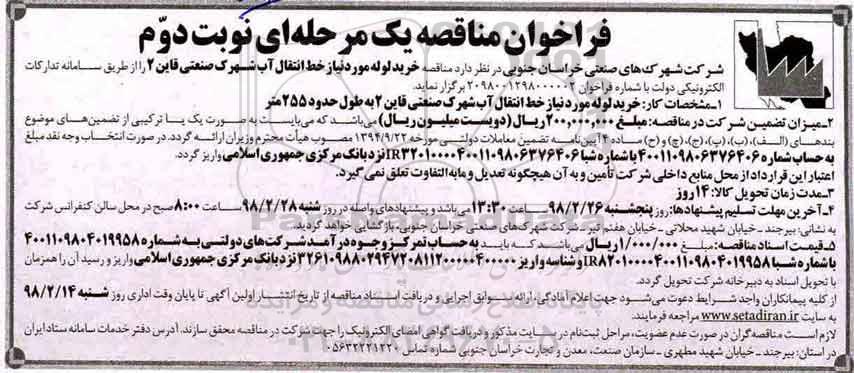 فراخوان مناقصه یک مرحله‌ای نوبت دوّم
شرکت شهرک‌های صنعتی خراسان جنوبی در نظر دارد مناقصه خرید لوله مورد نیاز خط انتقال آب شهرک صنعتی قاین ۲ را از طریق سامانه تدارکات
الکترونیکی دولت با شماره فراخوان ۲۰۹۸۰۰۱۲۹۸۰۰۰۰۰۲ برگزار نماید.
۱ـ مشخصات کار: خرید لوله مورد نیاز خط انتقال آب شهرک صنعتی قاین ۲ به طول حدود ۲۵۵ متر
۲ـ میزان تضمین شرکت در مناقصه: مبلغ ۲۰۰,۰۰۰,۰۰۰ ریال (دویست میلیون ریال) می‌باشد که می‌بایست به صورت یک یا ترکیبی از تضمین‌های موضوع
بندهای (الف)، (ب)، (پ)، (ج)، (چ) و (ح) ماده ۴ آیین‌نامه تضمین معاملات دولتی مورخه ۱۳۹۴/۹/۲۲ مصوب هیأت محترم وزیران ارائه گردد. در صورت انتخاب وجه نقد مبلغ
به حساب شماره ۴۰۰۱۱۰۹۸۰۶۳۷۶۴۰۶ با شماره شبا IR۳۲۰۱۰۰۰۰۴۰۰۱۱۰۹۸۰۶۳۷۶۴۰۶ نزد بانک مرکزی جمهوری اسلامی واریز گردد.
اعتبار این قرارداد از محل منابع داخلی شرکت تأمین و به آن هیچگونه تعدیل و مابه التفاوت تعلق نمی گیرد.
۳ـ مدت زمان تحویل کالا: ۱۴ روز
۴ـ آخرین مهلت تسلیم پیشنهادها: روز پنجشنبه ۹۸/۲/۲۶ ساعت ۱۳:۳۰ می‌باشد و پیشنهادهای واصله در روز شنبه ۹۸/۲/۲۸ ساعت ۸:۰۰ صبح در محل سالن کنفرانس شرکت
به نشانی: بیرجند ـ خیابان شهید محلاتی ـ خیابان هفتم تیر ـ شرکت شهرک‌های صنعتی خراسان جنوبی، بازگشایی خواهد گردید.
۵ـ قیمت اسناد مناقصه: مبلغ ۱/۰۰۰/۰۰۰ ریال می‌باشد که باید به حساب تمرکز وجوه درآمد شرکت‌های دولتی به شماره ۴۰۰۱۱۰۹۸۰۴۰۱۹۹۵۸
با شماره شبا IR۸۲۰۱۰۰۰۰۴۰۰۱۱۰۹۸۰۴۰۱۹۹۵۸ و شناسه واریز ۳۲۶۱۰۹۸۸۰۲۹۴۷۲۰۸۱۱۲۰۰۰۰۰۴۰۰۰۰۰ نزد بانک مرکزی جمهوری اسلامی واریز و رسید آن را همزمان
با تحویل اسناد به دبیرخانه شرکت تحویل گردد.
از کلیه پیمانکاران واجد شرایط دعوت می‌شود جهت اعلام آمادگی، ارائه سوابق اجرایی و دریافت اسناد مناقصه از تاریخ انتشار اولین آگهی تا پایان وقت اداری روز شنبه ۹۸/۲/۱۴
به سایت www.setadiran.ir مراجعه فرمایند.
لازم است مناقصه‌گران در صورت عدم عضویت، مراحل ثبت‌نام در سایت مذکور و دریافت گواهی امضای الکترونیک را جهت شرکت در مناقصه محقق سازند. آدرس دفتر خدمات سامانه ستاد ایران
در استان: بیرجند ـ خیابان شهید مطهری ـ سازمان صنعت، معدن و تجارت خراسان جنوبی شماره تماس ۰۵۶۳۲۲۲۱۲۲۰